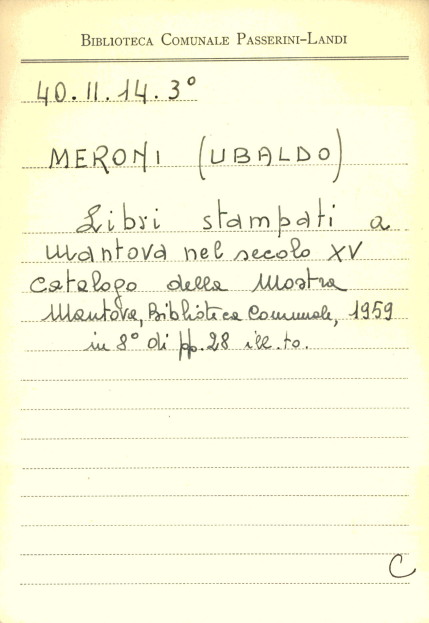 BIBLIOTECA COMUNALE PASSERINI-LANDI
40.II.14.3°
MERONI (UBALDO)
Libri stampati a
Mantova nel secolo XV
Catalogo della Mostra
Mantova, Biblioteca Comunale, 1959
in 8° di pp. 28 ill.to.
C